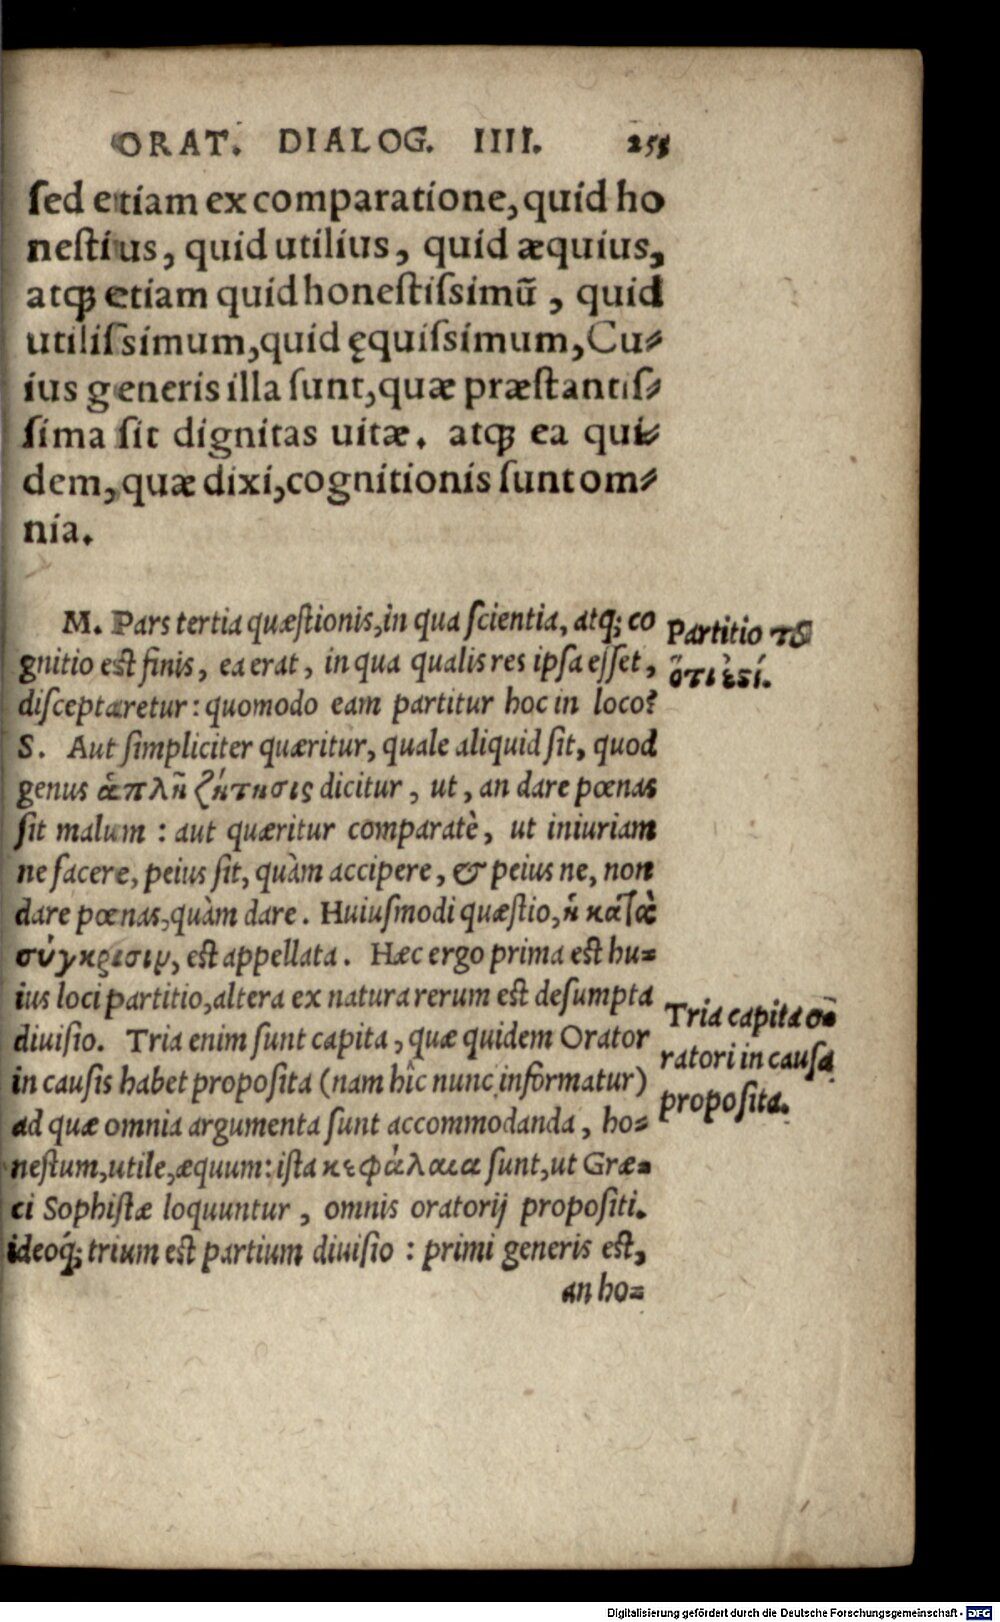 ORAT. DIALOG. IIII. 255
sed etiam ex comparatione, quid ho
nestius, quid utilius, quid æquius,
atq; etiam quid honestissimũ, quid
utilissimum, quid ęquissimum, Cu-
ius generis illa sunt, quæ præstantis-
sima sit dignitas uitæ. atq; ea qui-
dem, quæ dixi, cognitionis sunt om-
nia.
M. Pars tertia quæstionis, in qua scientia, atq; co
gnitio est finis, ea erat, in qua qualis res ipsa esset,
disceptaretur: quomodo eam partitur hoc in loco?
S. Aut simpliciter quæritur, quale aliquid sit, quod
genus ἁπλῆ ζήτησις dicitur, ut, an dare pœnas
sit malum: aut quæritur comparatè, ut iniuriam
ne facere, peius sit, quàm accipere, & peius ne, non
dare pœnas, quàm dare. Huiusmodi quæstio, ἡ κατὰ
σύγκρισιν, est appellata. Hæc ergo prima est hu-
ius loci partitio, altera ex natura rerum est desumpta
diuisio. Tria enim sunt capita, quæ quidem Orator
in causis habet proposita (nam hîc nunc informatur)
ad quæ omnia argumenta sunt accommodanda, ho-
nestum, utile, æquum: ista κεφάλαια sunt, ut Græ-
ci Sophistæ loquuntur, omnis oratorij propositi.
ideoq́; trium est partium diuisio: primi generis est,
an ho-
Partitio τοῦ
ὅτι ἐστί.
Tria capita o-
ratori in causa
proposita.
Digitalisierung gefördert durch die Deutsche Forschungsgemeinschaft - DFG